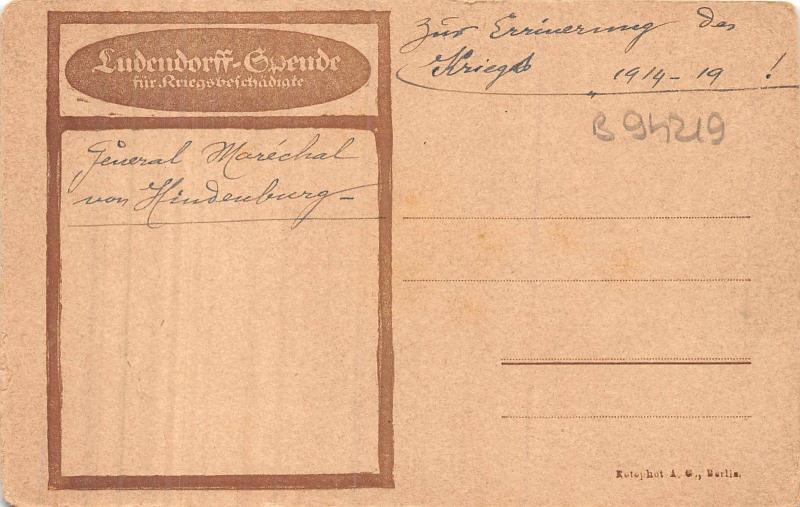 Ludendorff-Spende
für Kriegsbeschädigte
General Maréchal
von Hindenburg
Zur Errinerung des
Kriegs 1914-19 !
B 94219
Rotophot A. G., Berlin.